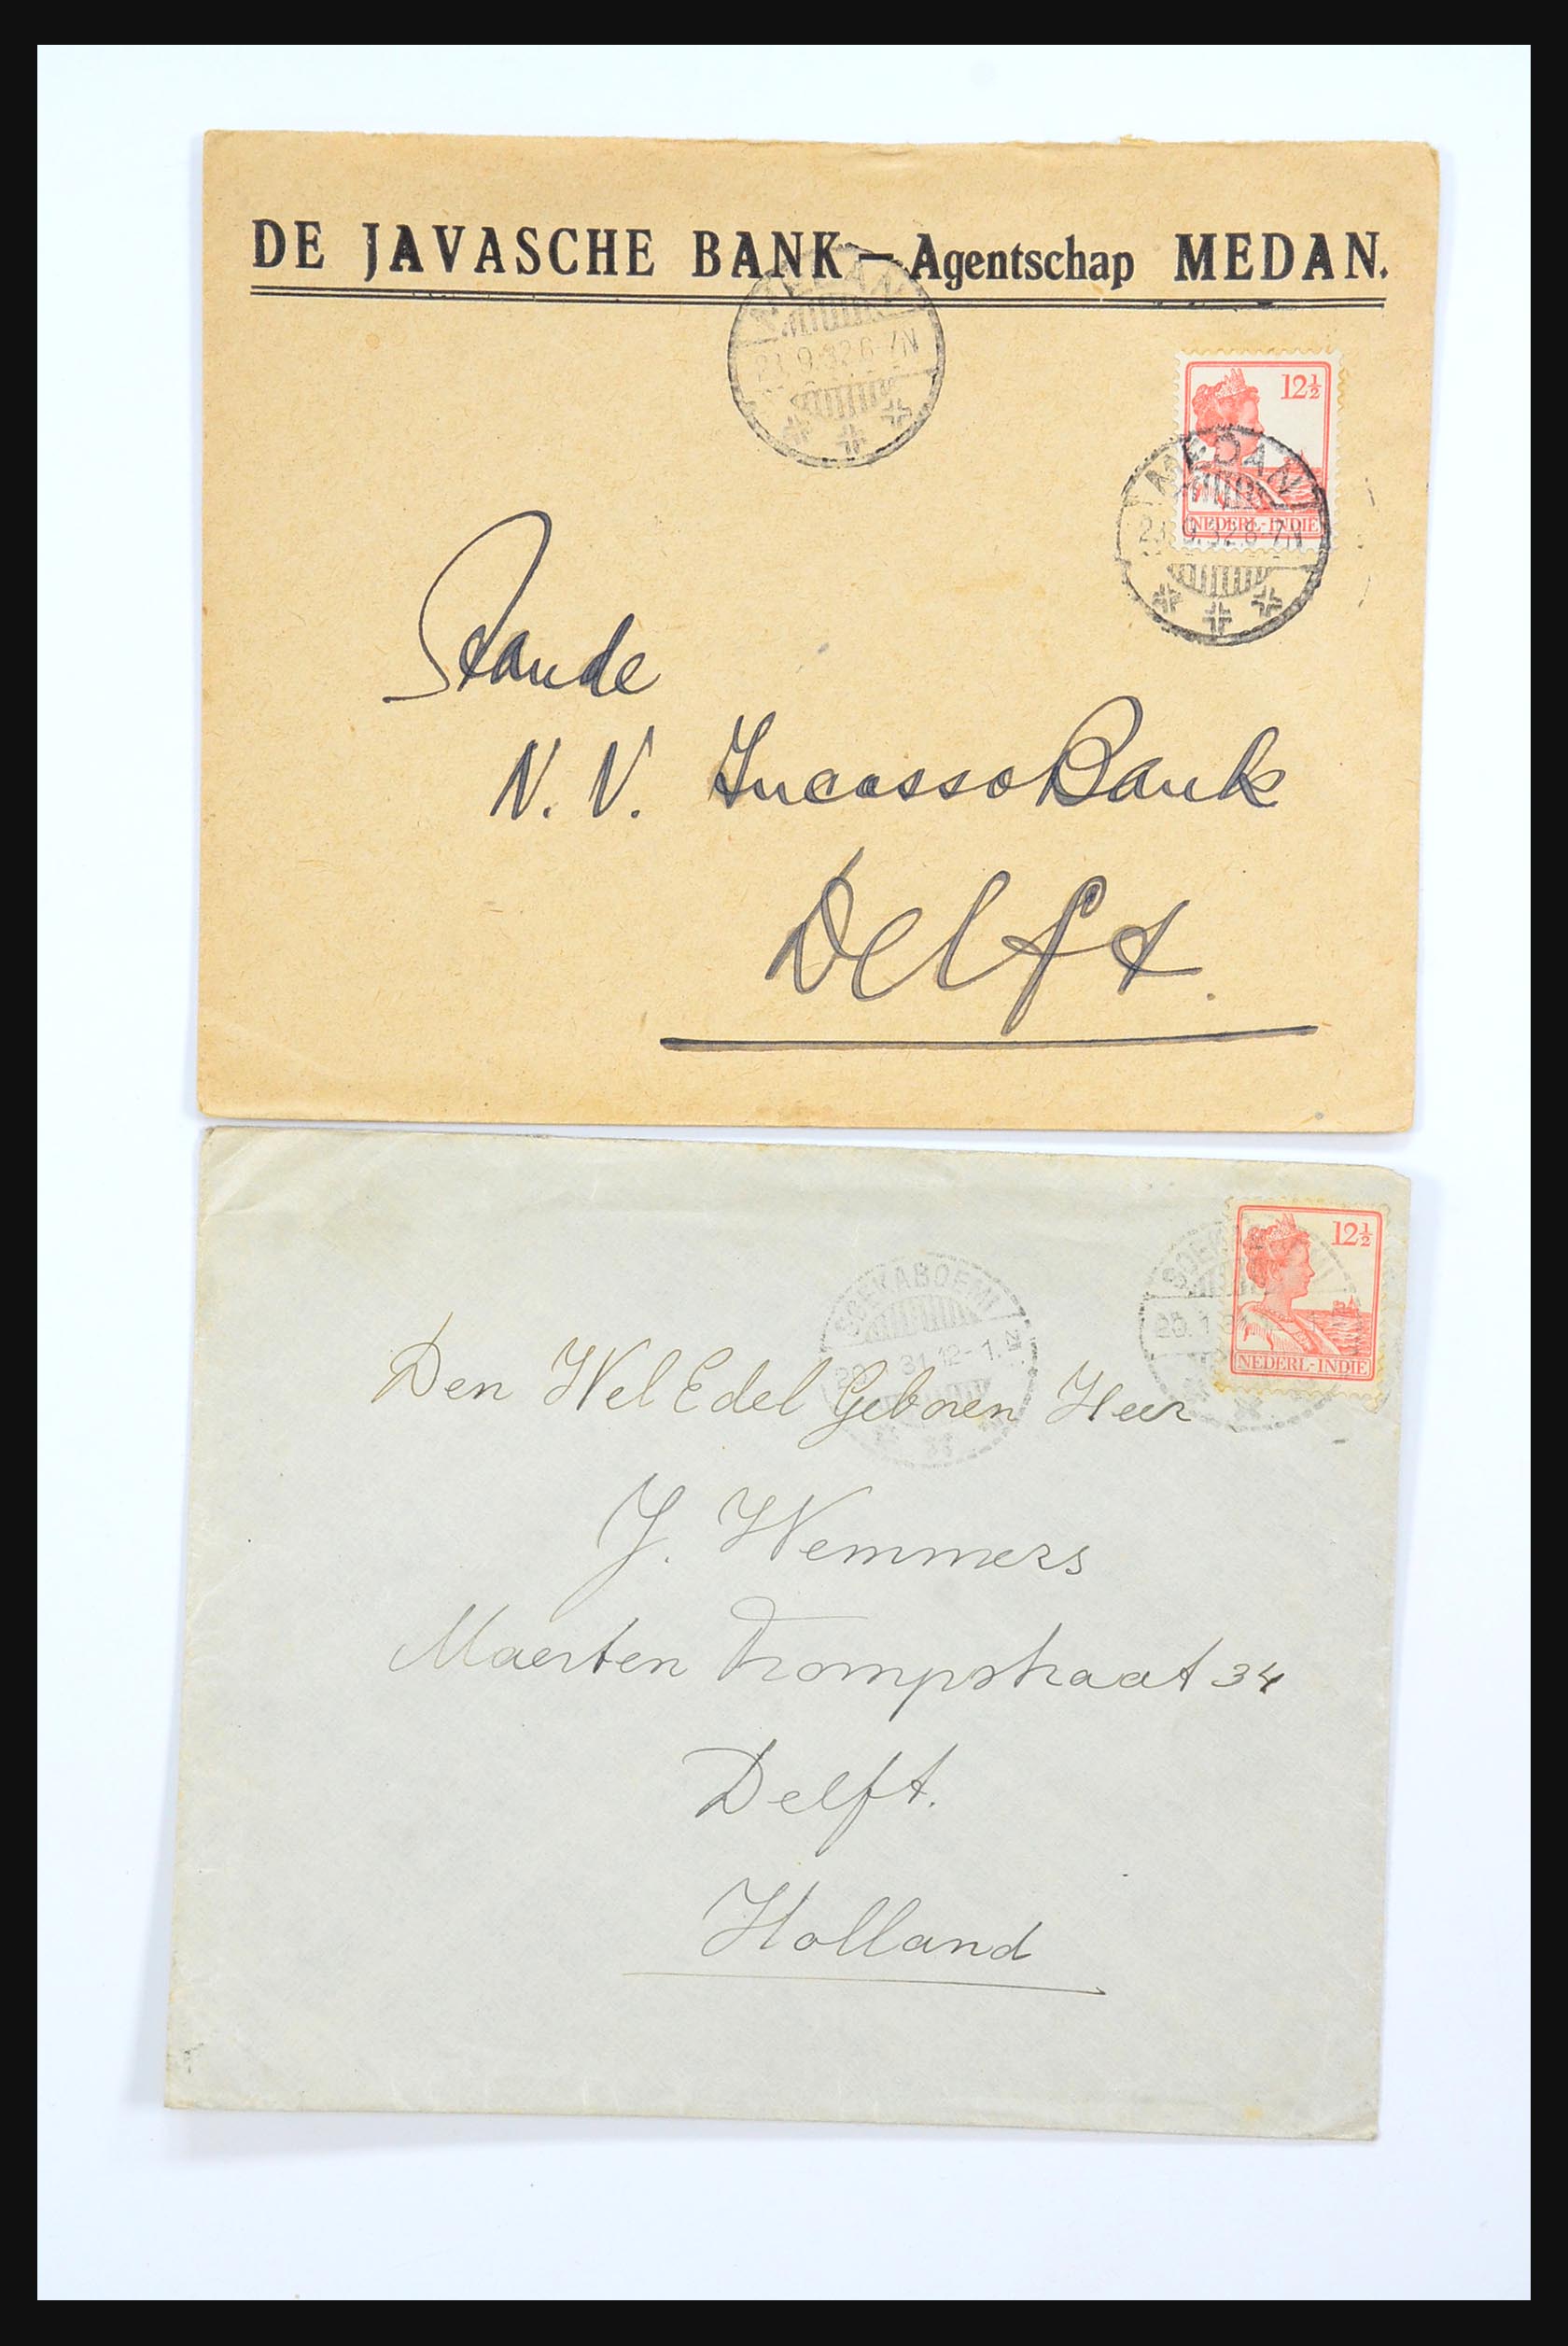 DE JAVASCHE BANK — Agentschap MEDAN.
MEDAN
23.9.32.6-7N
12½
NEDERL-INDIE
MEDAN
23.9.32.6-7N
N. V. IncassoBank
Delft.
12½
NEDERL-INDIE
SOEKABOEMI
31.12-1.N
Den Wel Edel Geboren Heer
J. Wemmers
Maerten Trompstraat 34
Delft.
Holland